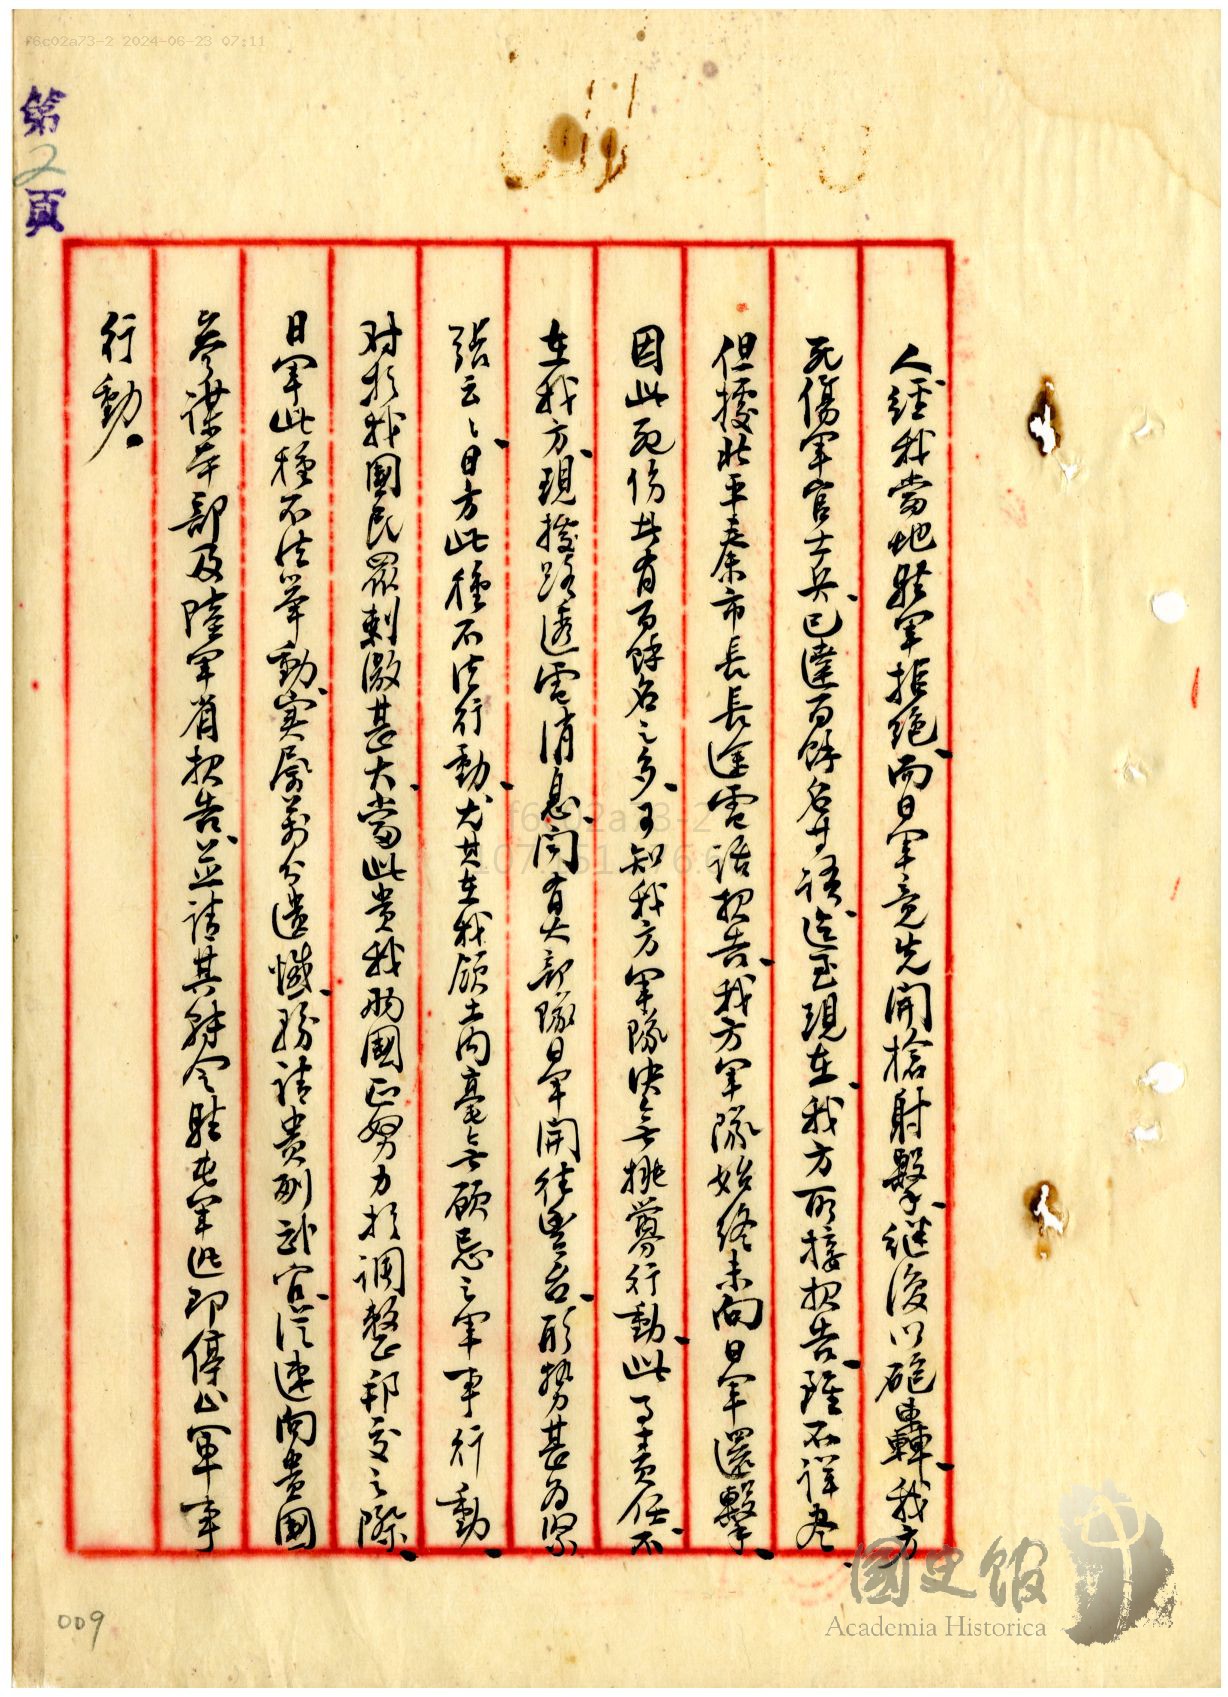 f6c02a73-2 2024-06-23 07:11
第2頁
人經我當地駐軍拒絕、而日軍竟先開槍射擊、繼復以砲轟、我方
死傷軍官士兵、已達百餘名等語、迄至現在、我方所接報告、雖不詳盡、
但據北平秦市長長途電話報告、我方軍隊始終未向日軍還擊、
因此死傷共有百餘名之多、可知我方軍隊決無挑釁行動、此事責任、不
在我方、現據路透電消息、聞有大部隊日軍開往豐台、形勢甚為緊
張云云、日方此種不法行動、尤其在我領土內毫無顧忌之軍事行動、
對於我國民眾刺激甚大、當此貴我兩國正努力於調整邦交之際、
日軍此種不法舉動、實屬萬分遺憾、務請貴副武官、從速向貴國
參謀本部及陸軍省報告、並請其能令駐屯軍迅即停止軍事
行動。
009
國史館
Academia Historica